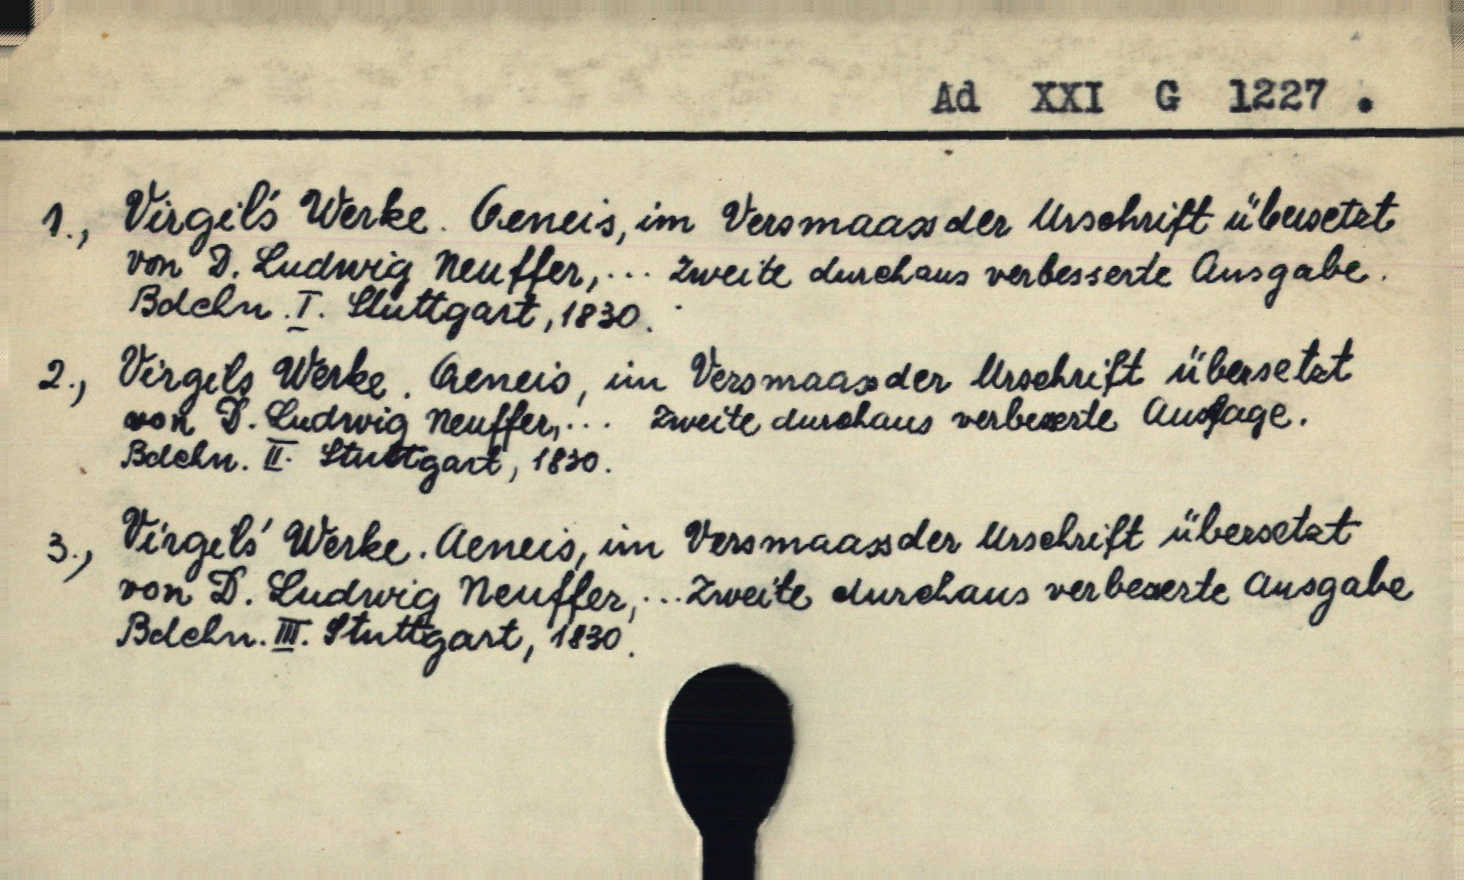 Ad XXI G 1227.
1., Virgil's Werke. Aeneis, im Versmaass der Urschrift übersetzt
von D. Ludwig Neuffer,... Zweite durchaus verbesserte Ausgabe.
Bdchn. I. Stuttgart, 1830.
2., Virgils Werke. Aeneis, im Versmaass der Urschrift übersetzt
von D. Ludwig Neuffer,... Zweite durchaus verbesserte Auflage.
Bdchn. II. Stuttgart, 1830.
3., Virgils' Werke. Aeneis, im Versmaass der Urschrift übersetzt
von D. Ludwig Neuffer,... Zweite durchaus verbesserte Ausgabe
Bdchn. III. Stuttgart, 1830.